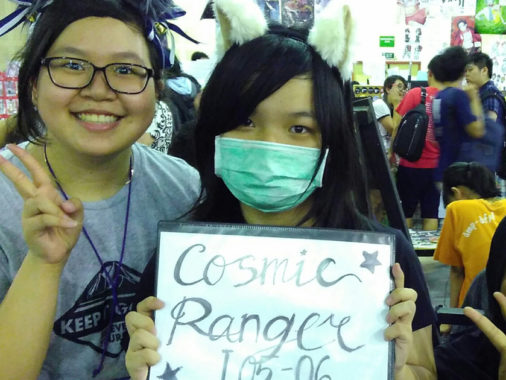 Cosmic
Ranger
I 05-06
KEEP